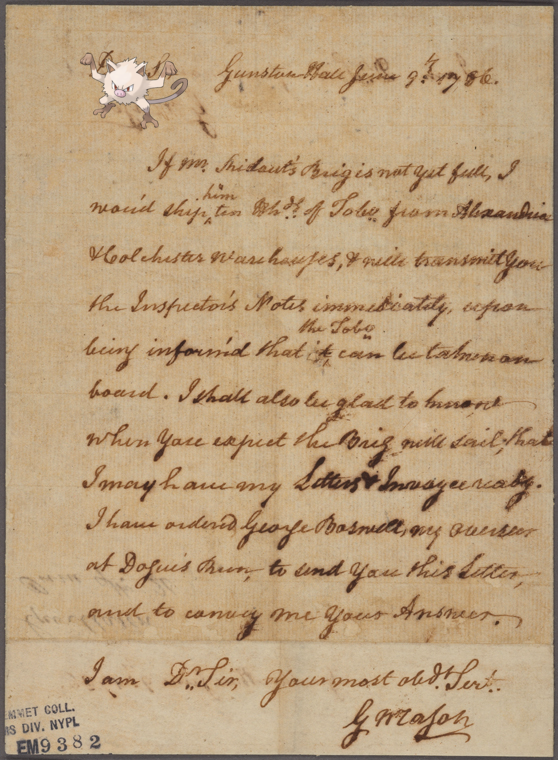 D S
Gunston Hall June 9th 1786.
If Mr. Ridout's Brig is not yet full, I
wou'd ship him ten Hhds. of Tobo. from Alexandria
& Colchester Warehouses, & will transmit You
the Inspector's Notes immediately, upon
being inform'd that the Tobo. can be taken on
board. I shall also be glad to know
when You expect the Brig will sail, that
I may have my Letters & Invoyce ready.
I have ordered George Boswell, my overseer
at Dogue's Run, to send You this Letter,
and to convey me Your Answer.
I am Dr. Sir, Your most obdt. Servt.
G Mason
EMMET COLL.
MS DIV. NYPL
EM9382